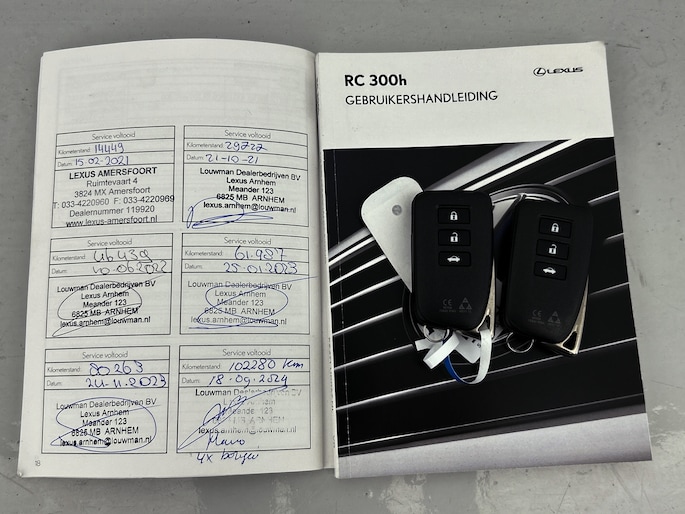 Service voltooid
Kilometerstand: 14449
Datum: 15-02-2021
LEXUS AMERSFOORT
Ruimtevaart 4
3824 MX Amersfoort
T: 033-4220960 F: 033-4220969
Dealernummer 119920
www.lexus-amersfoort.nl
Service voltooid
Kilometerstand: 29727
Datum: 21-10-21
Louwman Dealerbedrijven BV
Lexus Arnhem
Meander 123
6825 MB ARNHEM
lexus.arnhem@louwman.nl
Service voltooid
Kilometerstand: 46439
Datum: 10-06-2022
Louwman Dealerbedrijven BV
Lexus Arnhem
Meander 123
6825 MB ARNHEM
lexus.arnhem@louwman.nl
Service voltooid
Kilometerstand: 61.987
Datum: 25-01-2023
Louwman Dealerbedrijven BV
Lexus Arnhem
Meander 123
6825 MB ARNHEM
lexus.arnhem@louwman.nl
Service voltooid
Kilometerstand: 80263
Datum: 24-11-2023
Louwman Dealerbedrijven BV
Lexus Arnhem
Meander 123
6825 MB ARNHEM
lexus.arnhem@louwman.nl
Service voltooid
Kilometerstand: 102280 km
Datum: 18-09-2024
Louwman Dealerbedrijven BV
Lexus Arnhem
Meander 123
ARNHEM
lexus.arnhem@louwman.nl
4x
18
RC 300h
GEBRUIKERSHANDLEIDING
LEXUS
CE
CE